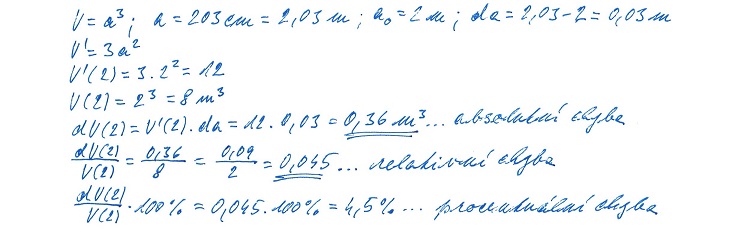 V = a³; a = 203 cm = 2,03 m; a₀ = 2 m; da = 2,03 - 2 = 0,03 m
V' = 3a²
V'(2) = 3 · 2² = 12
V(2) = 2³ = 8 m³
dV(2) = V'(2) · da = 12 · 0,03 = 0,36 m³ ... absolutní chyba
dV(2)/V(2) = 0,36/8 = 0,09/2 = 0,045 ... relativní chyba
dV(2)/V(2) · 100% = 0,045 · 100% = 4,5% ... procentuální chyba